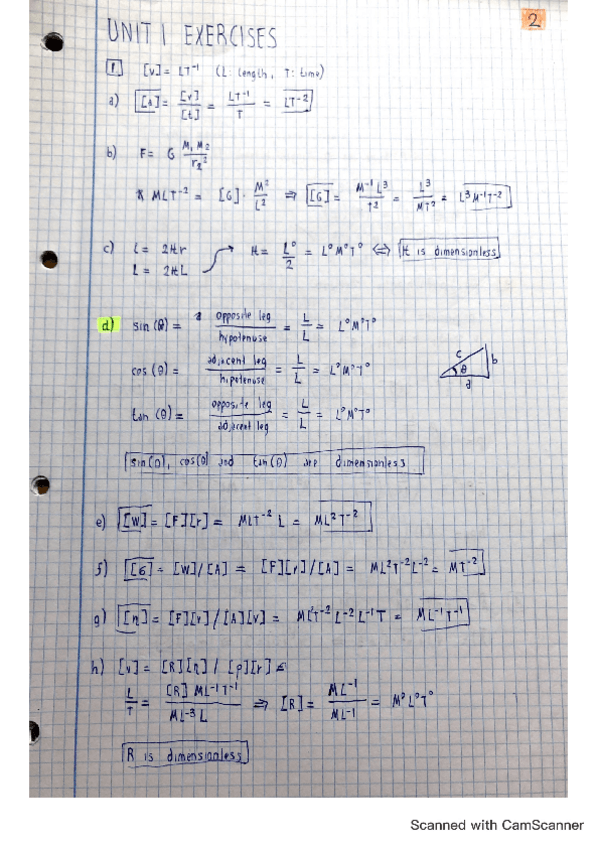 2
UNIT 1 EXERCISES
1. [v] = LT⁻¹ (L: length, T: time)
a) [a] = [v]/[t] = LT⁻¹/T = LT⁻²
b) F = G M₁M₂/r₂²
* MLT⁻² = [G] · M²/L² ⇒ [G] = M⁻¹L³/T² = L³/MT² = L³M⁻¹T⁻²
c) L = 2πr
L = 2πL π = L⁰/2 = L⁰M⁰T⁰ ⇔ π is dimensionless
d) sin(θ) = opposite leg/hypotenuse = L/L = L⁰M⁰T⁰
c b θ a
cos(θ) = adjacent leg/hipotenuse = L/L = L⁰M⁰T⁰
tan(θ) = opposite leg/adjacent leg = L/L = L⁰M⁰T⁰
sin(θ), cos(θ) and tan(θ) are dimensionless
e) [W] = [F][r] = MLT⁻² L = ML²T⁻²
f) [σ] = [W]/[A] = [F][r]/[A] = ML²T⁻²L⁻² = MT⁻²
g) [η] = [F][r]/[A][v] = ML²T⁻²L⁻²L⁻¹T = ML⁻¹T⁻¹
h) [v] = [R][η] / [ρ][r]
L/T = [R] ML⁻¹T⁻¹/ML⁻³L ⇒ [R] = ML⁻¹/ML⁻¹ = M⁰L⁰T⁰
R is dimensionless
Scanned with CamScanner